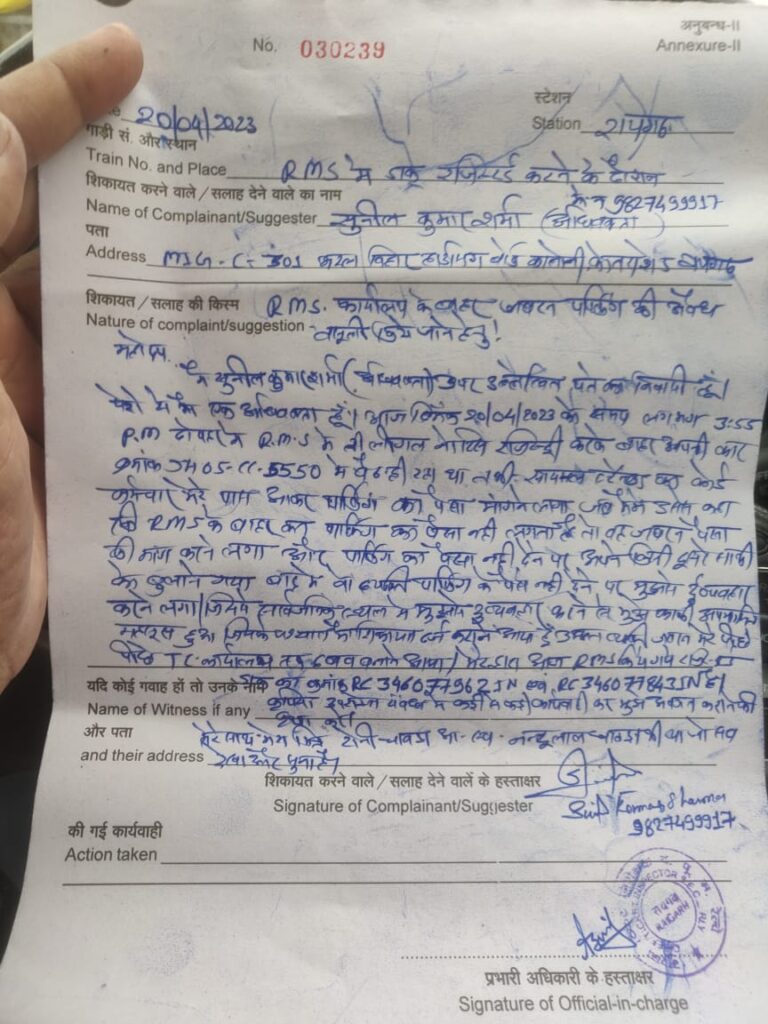 अनुबन्ध-II
No. 030239
Annexure-II
20/04/2023
स्टेशन
गाड़ी सं. और स्थान
Station रायगढ़
Train No. and Place RMS में डाक रजिस्टर्ड करने के दौरान
शिकायत करने वाले / सलाह देने वाले का नाम
9827499917
Name of Complainant/Suggester सुनील कुमार शर्मा (अधिवक्ता)
पता
Address MIG-C-301
शिकायत / सलाह की किस्म RMS. कार्यालय के बाहर जबरन पार्किंग की अवैध
Nature of complaint/suggestion वसूली किये जाने हेतु!
महोदय,
मैं सुनील कुमार शर्मा (अधिवक्ता) उपर उल्लेखित पते का निवासी हूँ।
पेशे से मैं एक अधिवक्ता हूँ। आज दिनांक 20/04/2023 के समय लगभग 3:55
P.M दोपहर में R.M.S में लीगल नोटिस रजिस्ट्री करके बाहर अपनी कार
क्रमांक 5550 में बैठ ही रहा था तभी स्टैण्ड का कोई
कर्मचारी मेरे पास आकर पार्किंग का पैसा मांगने लगा जब मैंने उससे कहा
कि RMS के बाहर का पार्किंग का पैसा नहीं लगता है तो वह जबरन पैसा
की मांग करने लगा और पार्किंग का पैसा नहीं देने पर अपने किसी दूसरे साथी
को बुलाने गया बाद में वो व्यक्ति पार्किंग के पैसे नहीं देने पर मुझसे दुर्व्यवहार
करने लगा। जिससे सार्वजनिक स्थल में मुझसे दुर्व्यवहार करने से मुझे काफी
महसूस हुआ
T.C. कार्यालय तक आया। मेरे द्वारा आज RMS किये गये
यदि कोई गवाह हों तो उनके नाम का क्रमांक RC 346077962 IN एवं RC 346077843 IN है।
Name of Witness if any कृपया उपरोक्त संबंध में कड़ी से कड़ी कार्यवाही कर मुझे अवगत कराने की
कृपा करें।
और पता मेरे साथ मेरे मित्र टोनी चावड़ा आ. स्व. नन्दूलाल चावड़ा भी थे जो सब
and their address
शिकायत करने वाले / सलाह देने वालें के हस्ताक्षर
Signature of Complainant/Suggester
Sunil Kumar Sharma
9827499917
की गई कार्यवाही
Action taken
प्रभारी अधिकारी के हस्ताक्षर
Signature of Official-in-charge